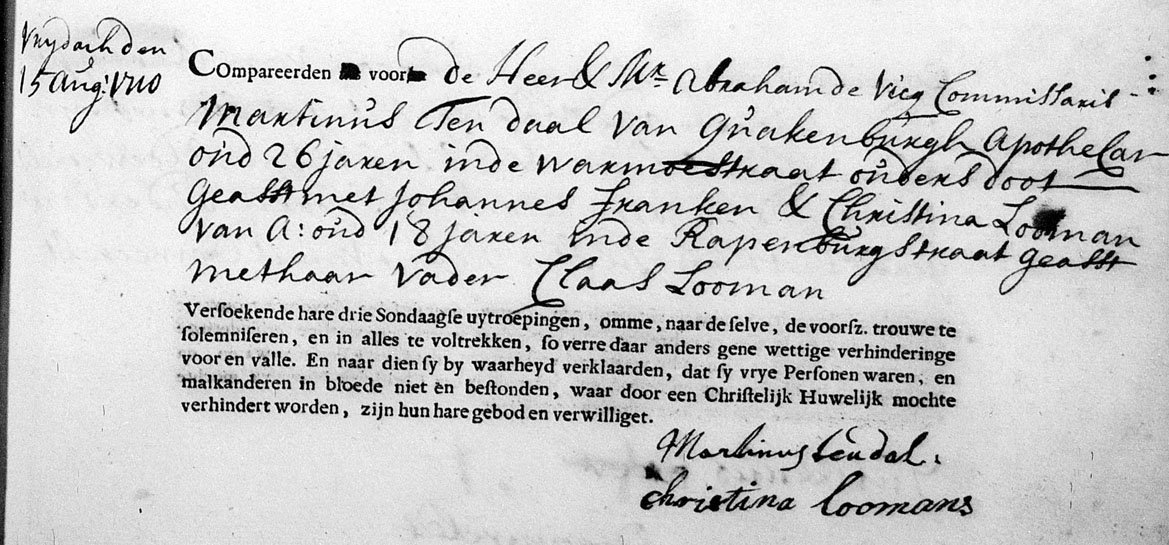 Vrydach den
15 Aug: 1710
Compareerden voor de Heer & Mr. Abraham de Vicq Commissaris
Martinus Ten daal van Quakenburgh Apothecar
oud 26 jaren inde Warmoestraat ouders doot
Geasst met Johannes Franken & Christina Looman
van A: oud 18 jaren inde Rapenburgstraat geasst
methaar Vader Claas Looman
Versoekende hare drie Sondaagse uytroepingen, omme, naar de selve, de voorsz. trouwe te
solemniseren, en in alles te voltrekken, so verre daar anders gene wettige verhinderinge
voor en valle. En naar dien sy by waarheyd verklaarden, dat sy vrye Personen waren, en
malkanderen in bloede niet en bestonden, waar door een Christelijk Huwelijk mochte
verhindert worden, zijn hun hare geboden verwilliget.
Martinus tendal.
christina loomans